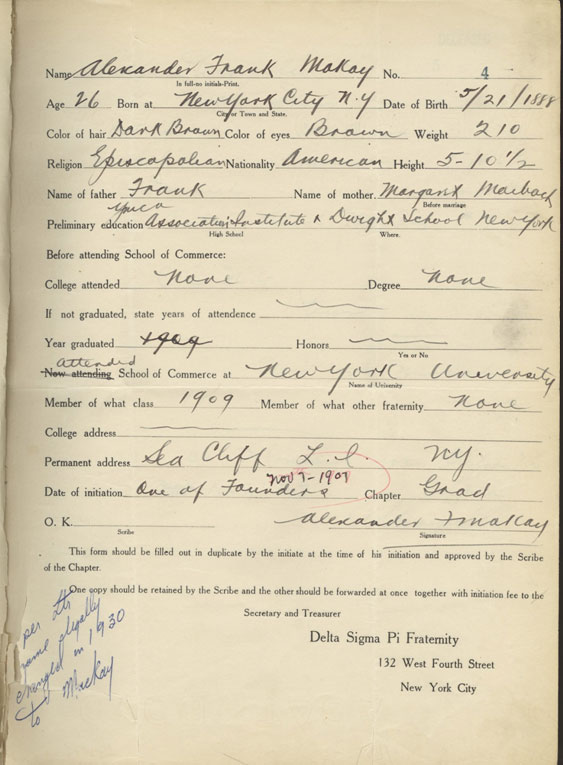 Name Alexander Frank Makay No. 4
In full-no initials-Print.
Age 26 Born at New York City N.Y Date of Birth 5/21/1888
City or Town and State.
Color of hair Dark Brown Color of eyes Brown Weight 210
Religion Episcopalian Nationality American Height 5-10 1/2
Name of father Frank Name of mother Margaret Maibach
Before marriage
Ymca
Preliminary education Association Institute & Dwight School New York
High School Where.
Before attending School of Commerce:
College attended None Degree None
If not graduated, state years of attendence
Year graduated 1909 Honors
Yes or No
attended
Now attending School of Commerce at New York University
Name of University
Member of what class 1909 Member of what other fraternity None
College address
Permanent address Sea Cliff L.I. NY.
Nov 7-1907
Date of initiation One of Founders Chapter Grad
O. K. Alexander F Makay
Scribe Signature
This form should be filled out in duplicate by the initiate at the time of his initiation and approved by the Scribe
of the Chapter.
One copy should be retained by the Scribe and the other should be forwarded at once together with initiation fee to the
Secretary and Treasurer
Delta Sigma Pi Fraternity
132 West Fourth Street
New York City
per Ltr
name legally
changed in 1930
to MacKay